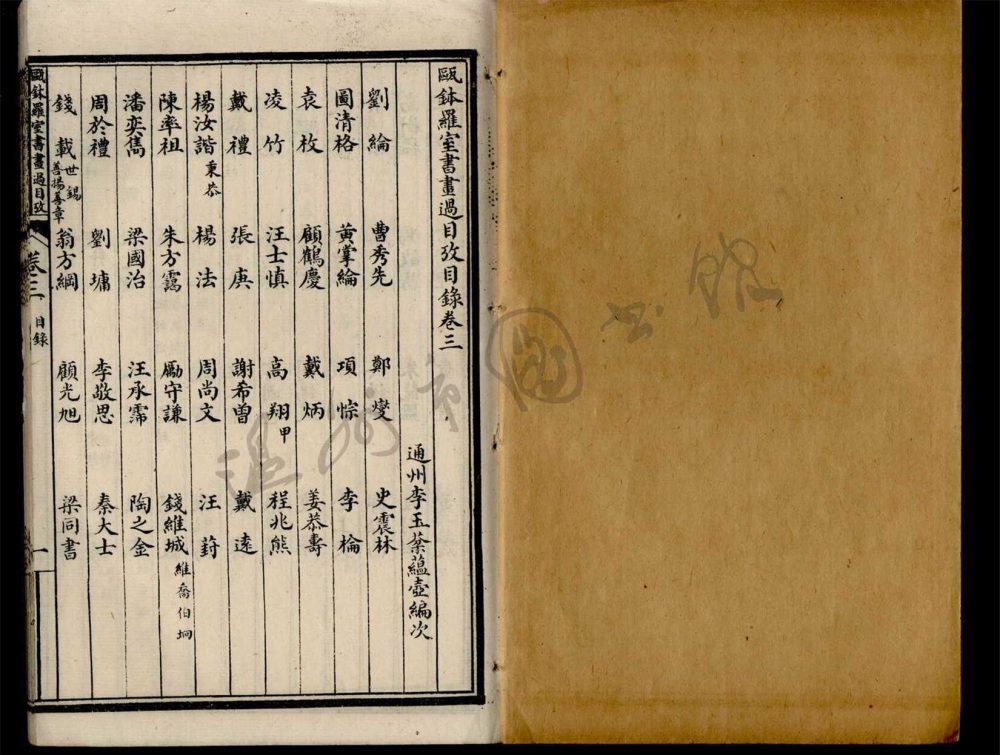 甌鉢羅室書畫過目攷目錄卷三
通州李玉棻藴壺編次
劉綸 曹秀先 鄭燮 史震林
圖清格 黃掌綸 項悰 李棆
袁枚 顧鶴慶 戴炳 姜恭壽
凌竹 汪士慎 高翔甲 程兆熊
戴禮 張庚 謝希曾 戴遠
楊汝諧秉恭 楊法 周尚文 汪葑
陳率祖 朱方靄 勵守謙 錢維城維喬伯坰
潘奕雋 梁國治 汪承霈 陶之金
周於禮 劉墉 李敬思 秦大士
錢載世錫善揚善章 翁方綱 顧光旭 梁同書
甌鉢羅室書畫過目攷 卷三 目錄 一
溫州市圖書館